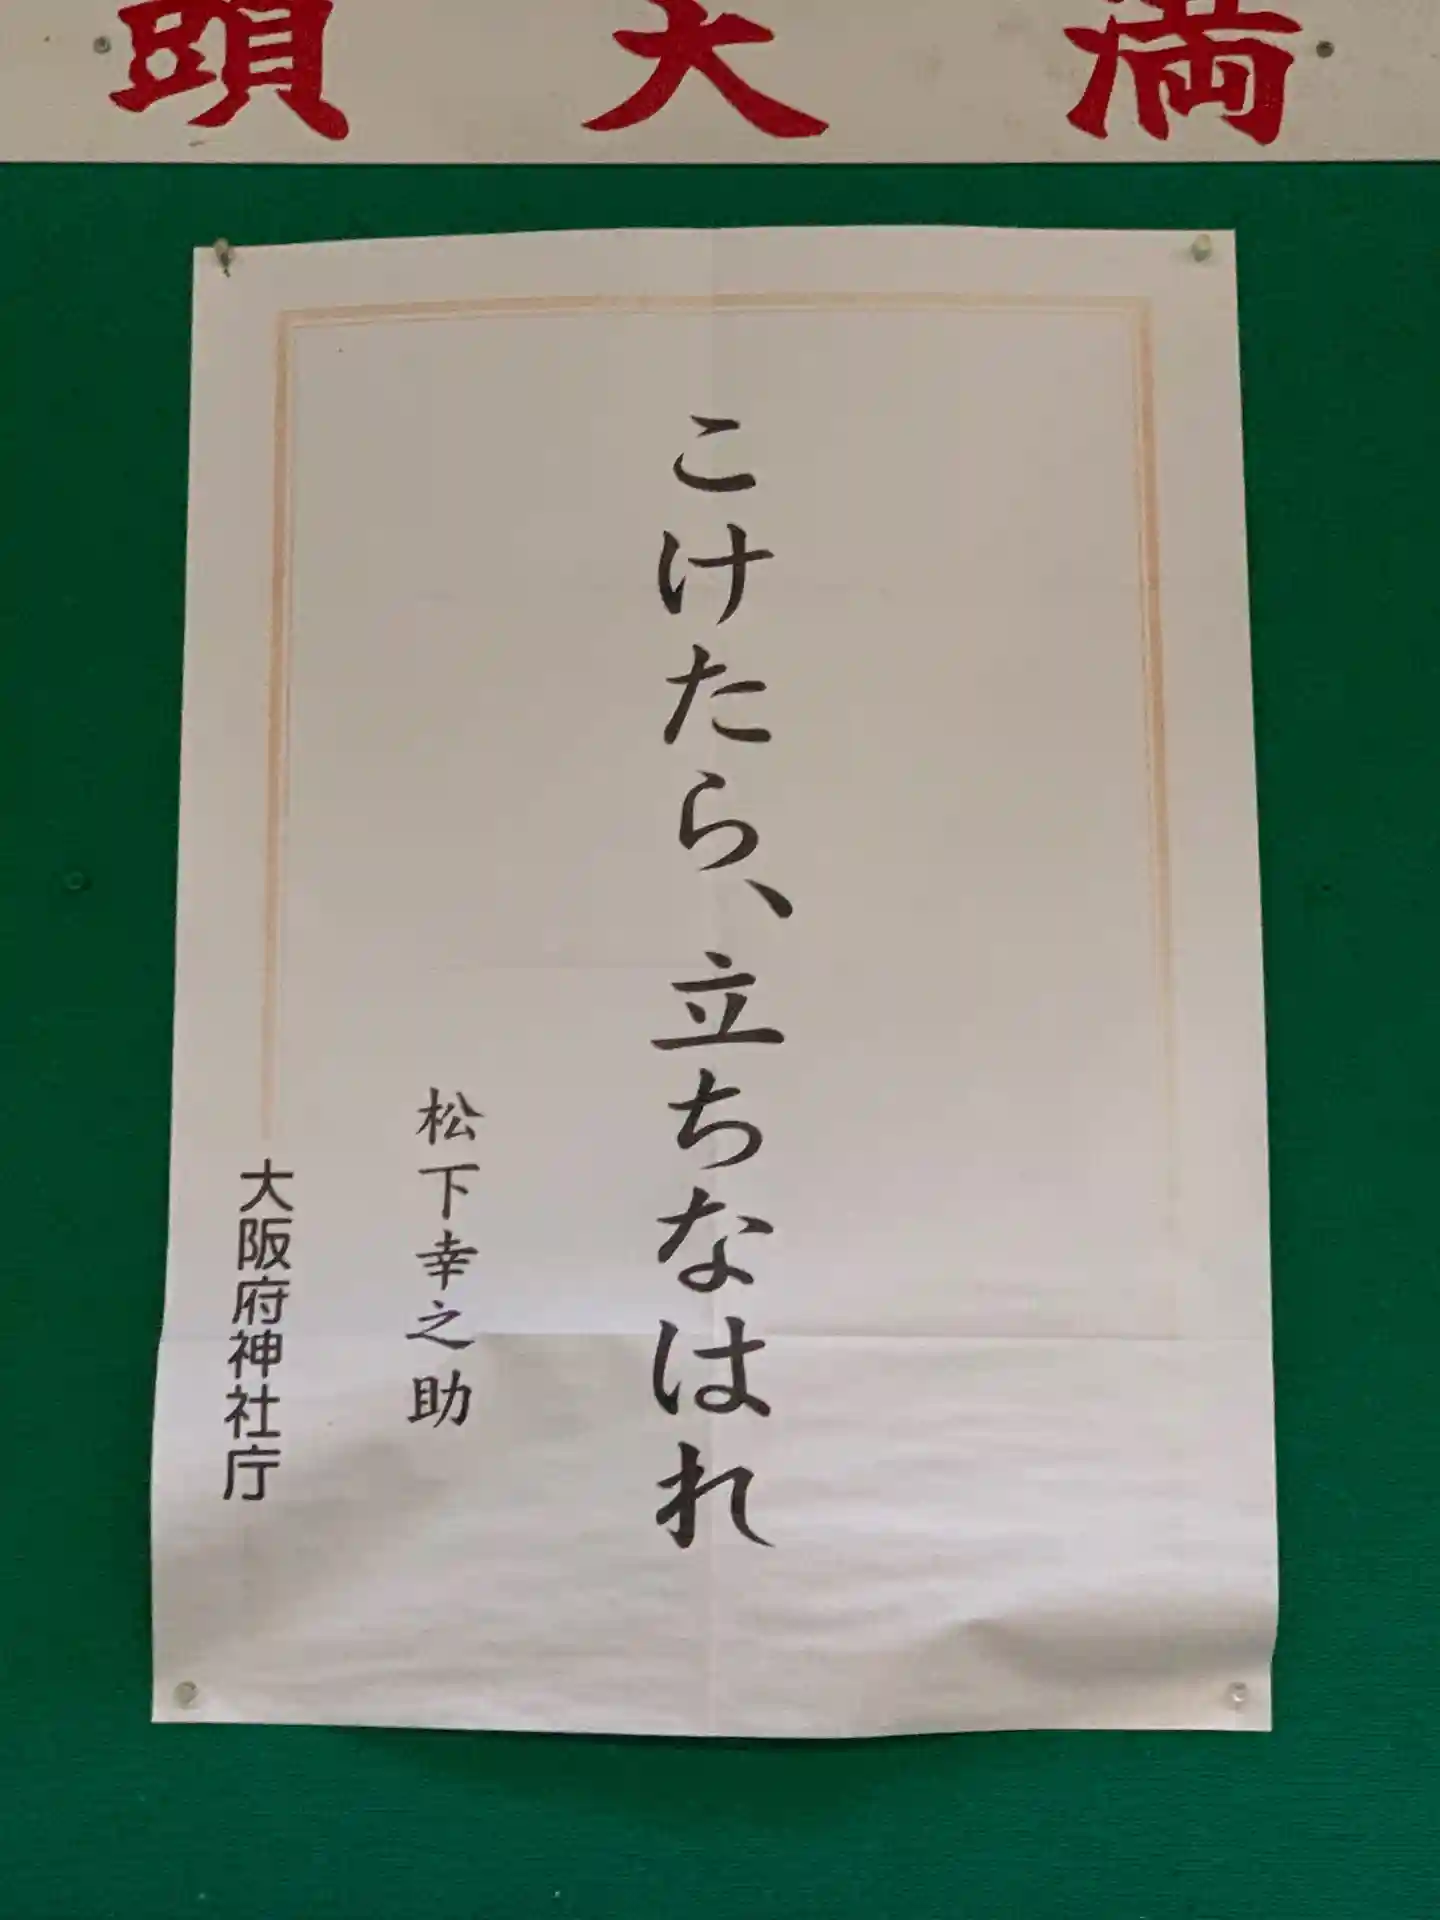 頭大満
こけたら、立ちなはれ
松下幸之助
大阪府神社庁